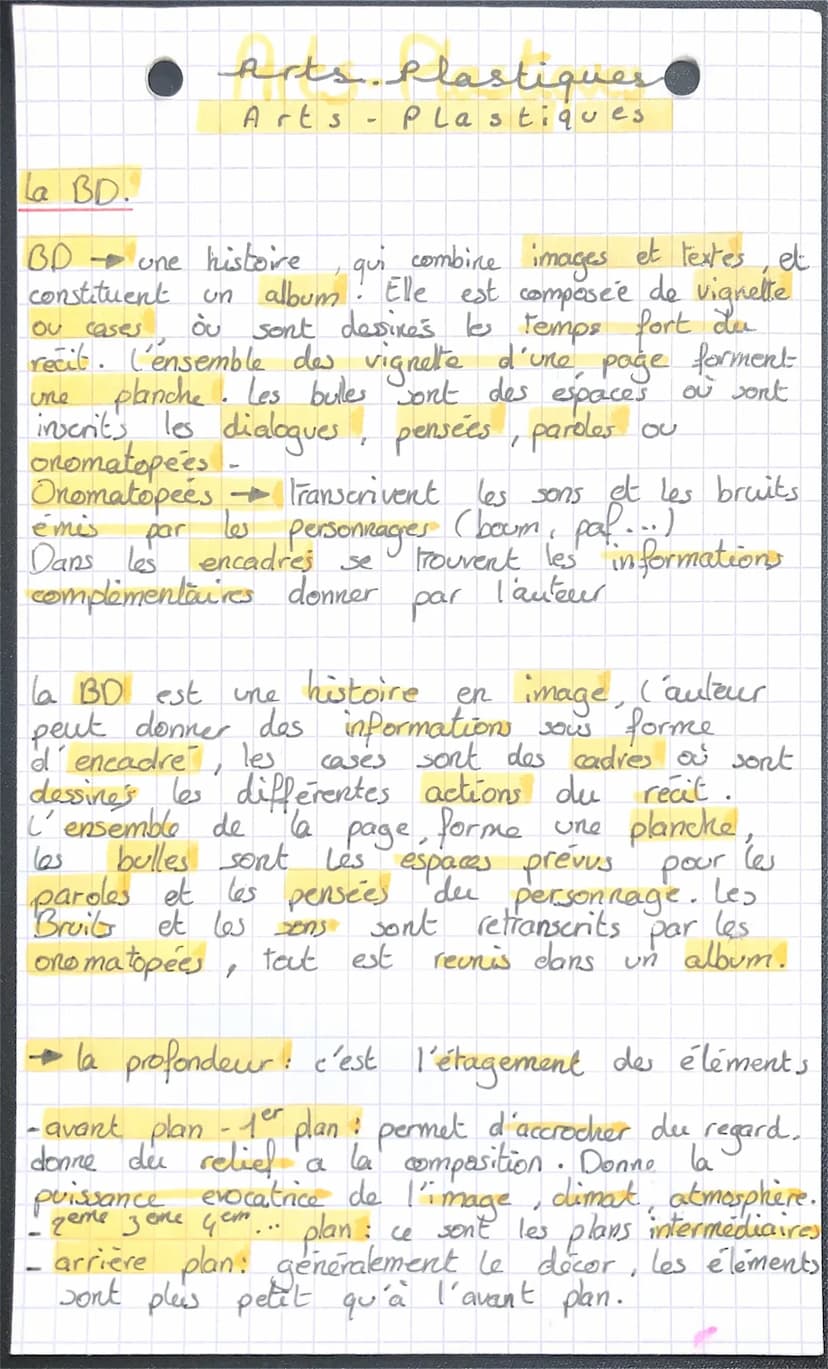 Arts-Plastiques
Arts-Plastiques
la BD.
BD → une histoire, qui combine images et textes, et
constituent un album. Elle est composée de vignette
ou cases, où sont dessinés les temps fort du
récit. L'ensemble des vignette d'une page forment
une planche. Les bules sont des espaces où sont
inscrits les dialogues, pensées, paroles ou
onomatopées.
Onomatopées → Transcrivent les sons et les bruits
émis par les personnages (boum, paf...)
Dans les encadrés se trouvent les informations
complémentaires donner par l'auteur
la BD est une histoire en image, l'auteur
peut donner des informations sous forme
d'encadré, les cases sont des cadres où sont
dessinés les différentes actions du récit.
L'ensemble de la page, forme une planche,
les bulles sont les espaces prévus pour les
paroles et les pensées du personnage. Les
Bruits et les sons sont retranscrits par les
onomatopées, tout est reunis dans un album.
→ la profondeur : c'est l'étagement des éléments
- avant plan - 1er plan : permet d'accrocher du regard.
donne du relief a la composition. Donne la
puissance evocatrice de l'image, climat, atmosphère.
- 2eme 3eme 4em... plan : ce sont les plans intermédiaires
- arrière plan : généralement le décor, les éléments
sont plus petit qu'à l'avant plan.